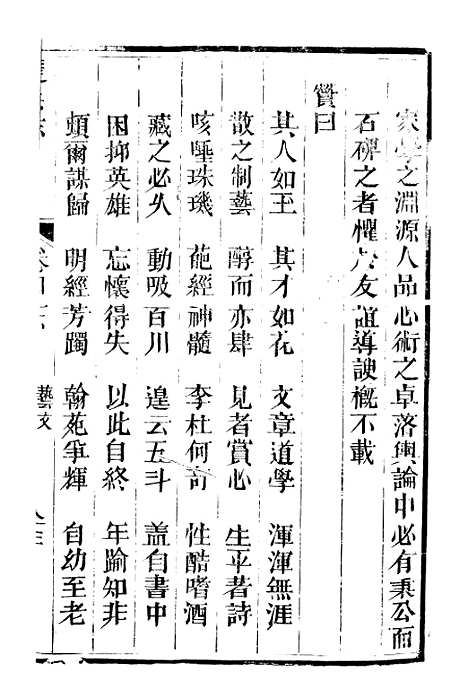 家學之淵源人品心術之卓落輿論中必有秉公而
石碑之者懼片友誼導諛概不載
贊曰
其人如玉　其才如花　文章道學　渾渾無涯
散之制藝　醇而亦肆　見者賞心　生平著詩
咳唾珠璣　葩經神髓　李杜何奇　性酷嗜酒
藏之必久　動吸百川　遑云五斗　蓋自書中
困抑英雄　忘懷得失　以此自終　年踰知非
頓爾謀歸　明經芳躅　翰苑爭輝　自幼至老
藝文